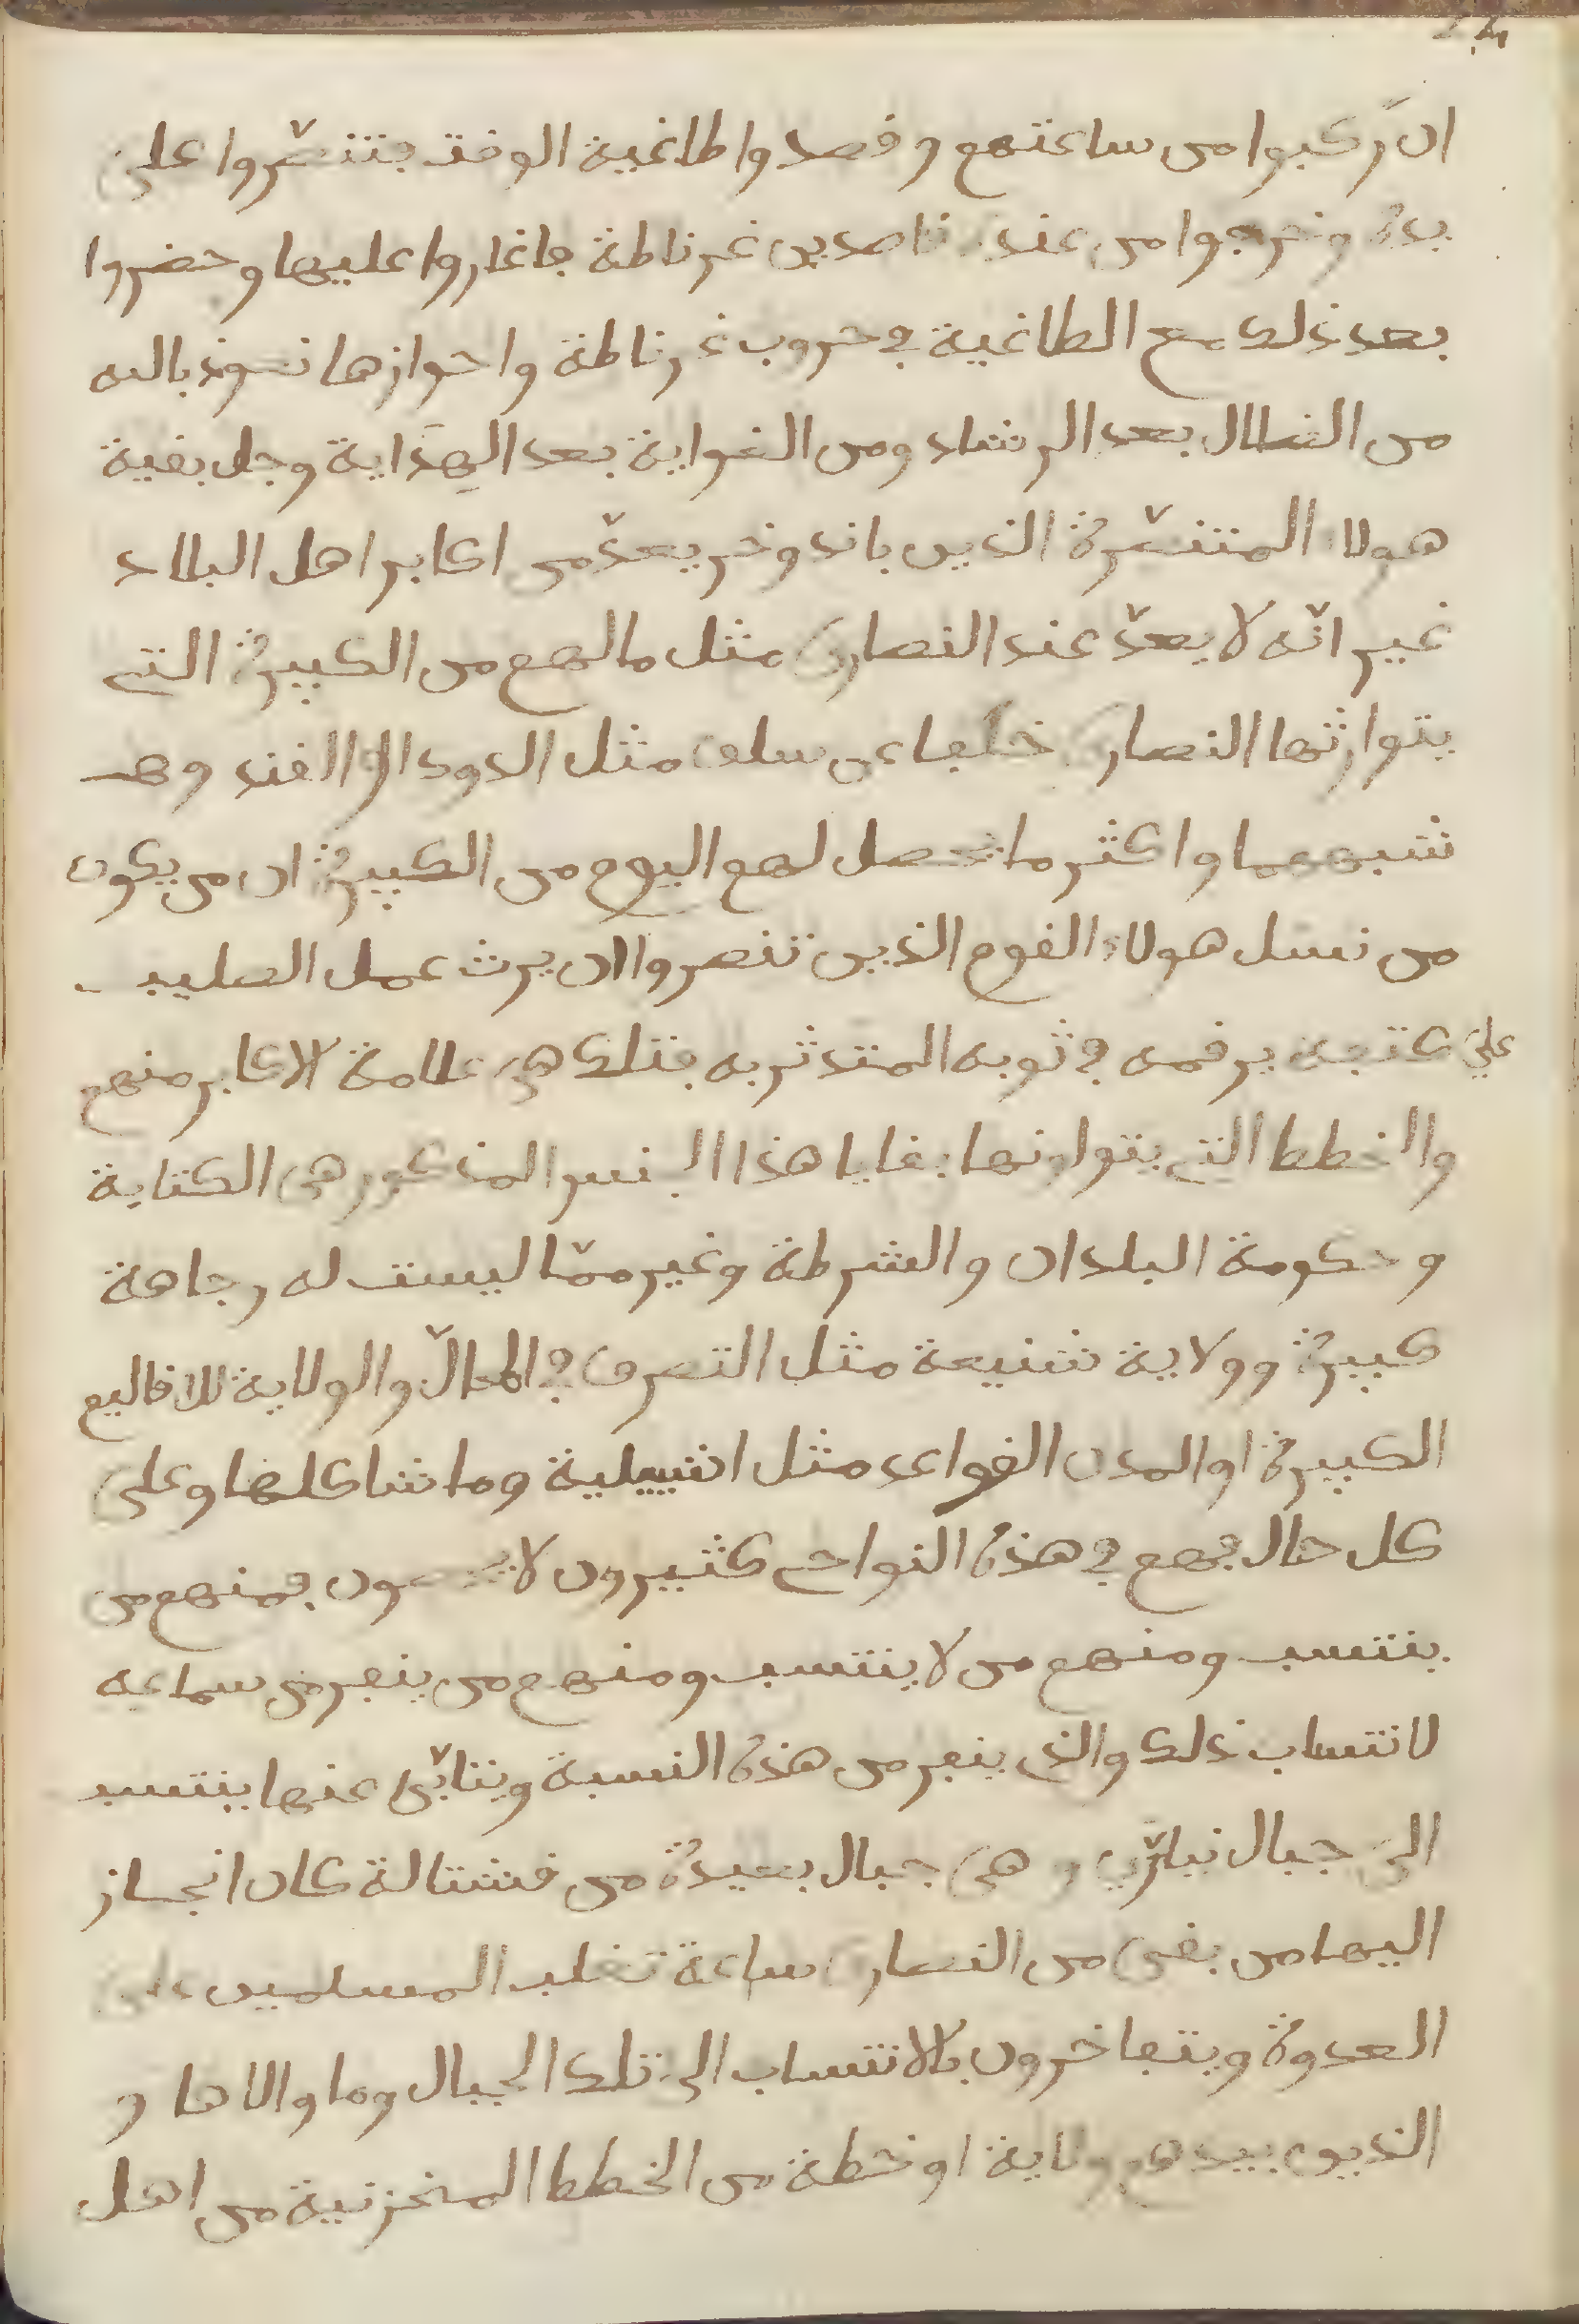 ان ركبوا من ساعتهم وقصدوا طاغية الوقت فتنصّروا على
يده وخرجوا من عنده قاصدين غرناطة فاغاروا عليها وحضروا
بعد ذلك مع الطاغية في حروب غرناطة واحوازها نعوذ بالله
من الضلال بعد الرشاد ومن الغواية بعد الهِدَاية وجل بقية
هولاء المتنصّرة الذين باندوخر يعدّ من اكابر اهل البلاد
غير انّه لا يعدّ عند النصارى مثل ما لهم من الكبيرة التي
يتوارثها النصارى خلفا عن سلف مثل الدودك او القند وهـ
شبههما واكثر ما تحصل لهم اليوم من الكبيرة ان من يكون
من نسل هولاء القوم الذين تنصروا ان يرث عمل الصليب
على كتفه يرقمه في ثوبه المتدثر به فتلك هي علامة الاكابر منهم
والخطط التي يتولونها بقايا هذا الجنس المذكور هي الكتابة
وحكومة البلدان والشرطة وغير ممّا ليست له وجاهة
كبيرة وولاية شنيعة مثل التصرف في المحالّ والولاية للاقاليم
الكبيرة او المدن القواعد مثل اشبيلية وما شاكلها وعلى
كل حال فهم في هذه النواحي كثيرون لا يحصون فمنهم من
ينتسب ومنهم من لا ينتسب ومنهم من ينفر من سماعه
لانتساب ذلك والذي ينفر من هذه النسبة ويتابّى عنها ينتسب
الى جبال نبارّي وهي جبال بعيدة من قشتالة كان انحاز
اليها من بقى من النصارى ساعة تغلب المسلمين على
العدوة ويتفاخرون بالانتساب الى تلك الجبال وما والاها و
الذين بيدهم ولاية او خطة من الخطط المخزنية من اهل